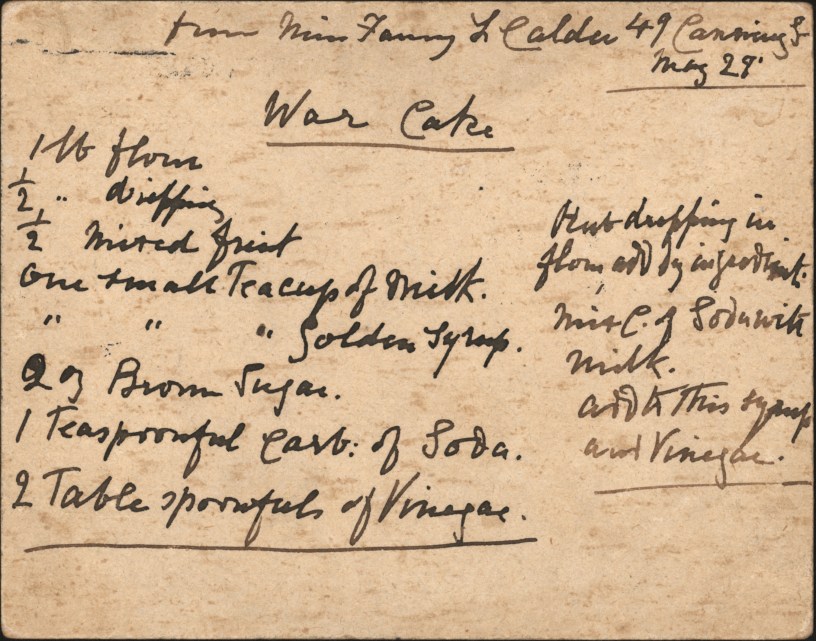 from Miss Fanny L Calder 49 Canning St
May 28
War Cake
1 lb flour
1/2 " dripping
1/2 mixed fruit
One small Teacup of Milk.
" " " Golden Syrup.
2 oz Brown Sugar.
1 Teaspoonful Carb: of Soda.
2 Table spoonfuls of Vinegar.
Rub dripping in
flour add dry ingredients.
Mix C. of Soda with
milk.
add to this syrup
and Vinegar.